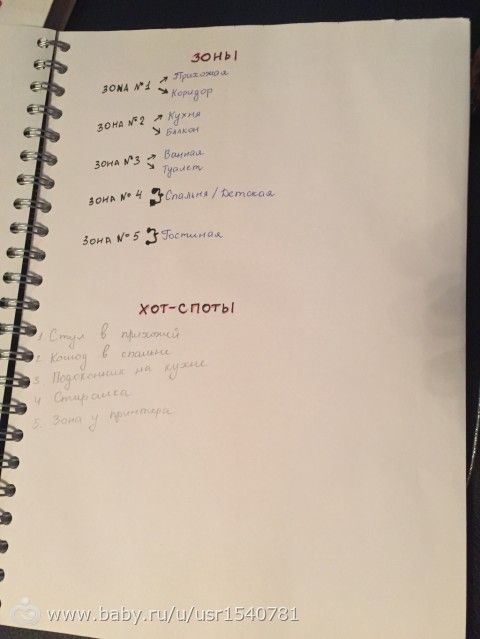 ЗОНЫ
ЗОНА №1 → Прихожая
→ Коридор
ЗОНА №2 → Кухня
→ Балкон
ЗОНА №3 → Ванная
→ Туалет
ЗОНА №4 } Спальня / Детская
ЗОНА №5 } Гостиная
ХОТ-СПОТЫ
1 Стул в прихожей
2 Комод в спальне
3 Подоконник на кухне
4 Стиралка
5. Зона у принтера
www.baby.ru/u/usr1540781